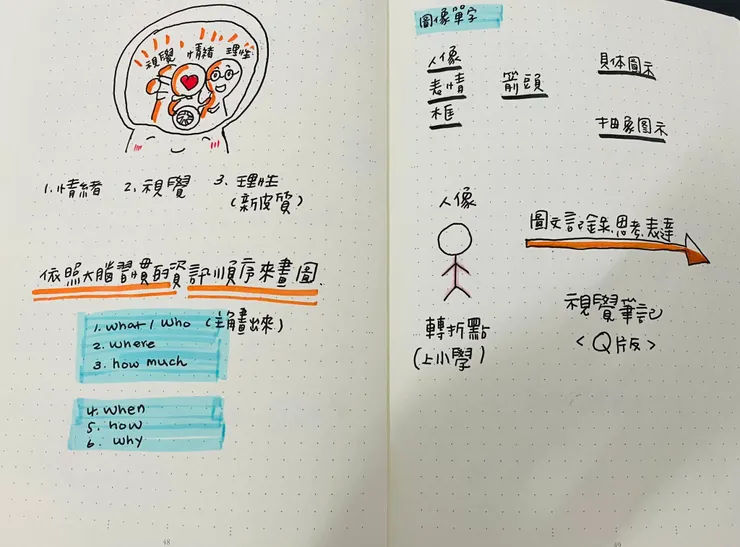 視覺 情緒 理性
1. 情緒 2. 視覺 3. 理性
(新皮質)
依照大腦習慣的資訊順序來畫圖
1. what / who (主角畫出來)
2. where
3. how much
4. when
5. how
6. why
48
圖像單字
人像
表情 箭頭 具体圖示
框 抽象图示
人像
圖文記錄.思考.表達
轉折點
(上小學)
視覺筆記
<Q版>
49